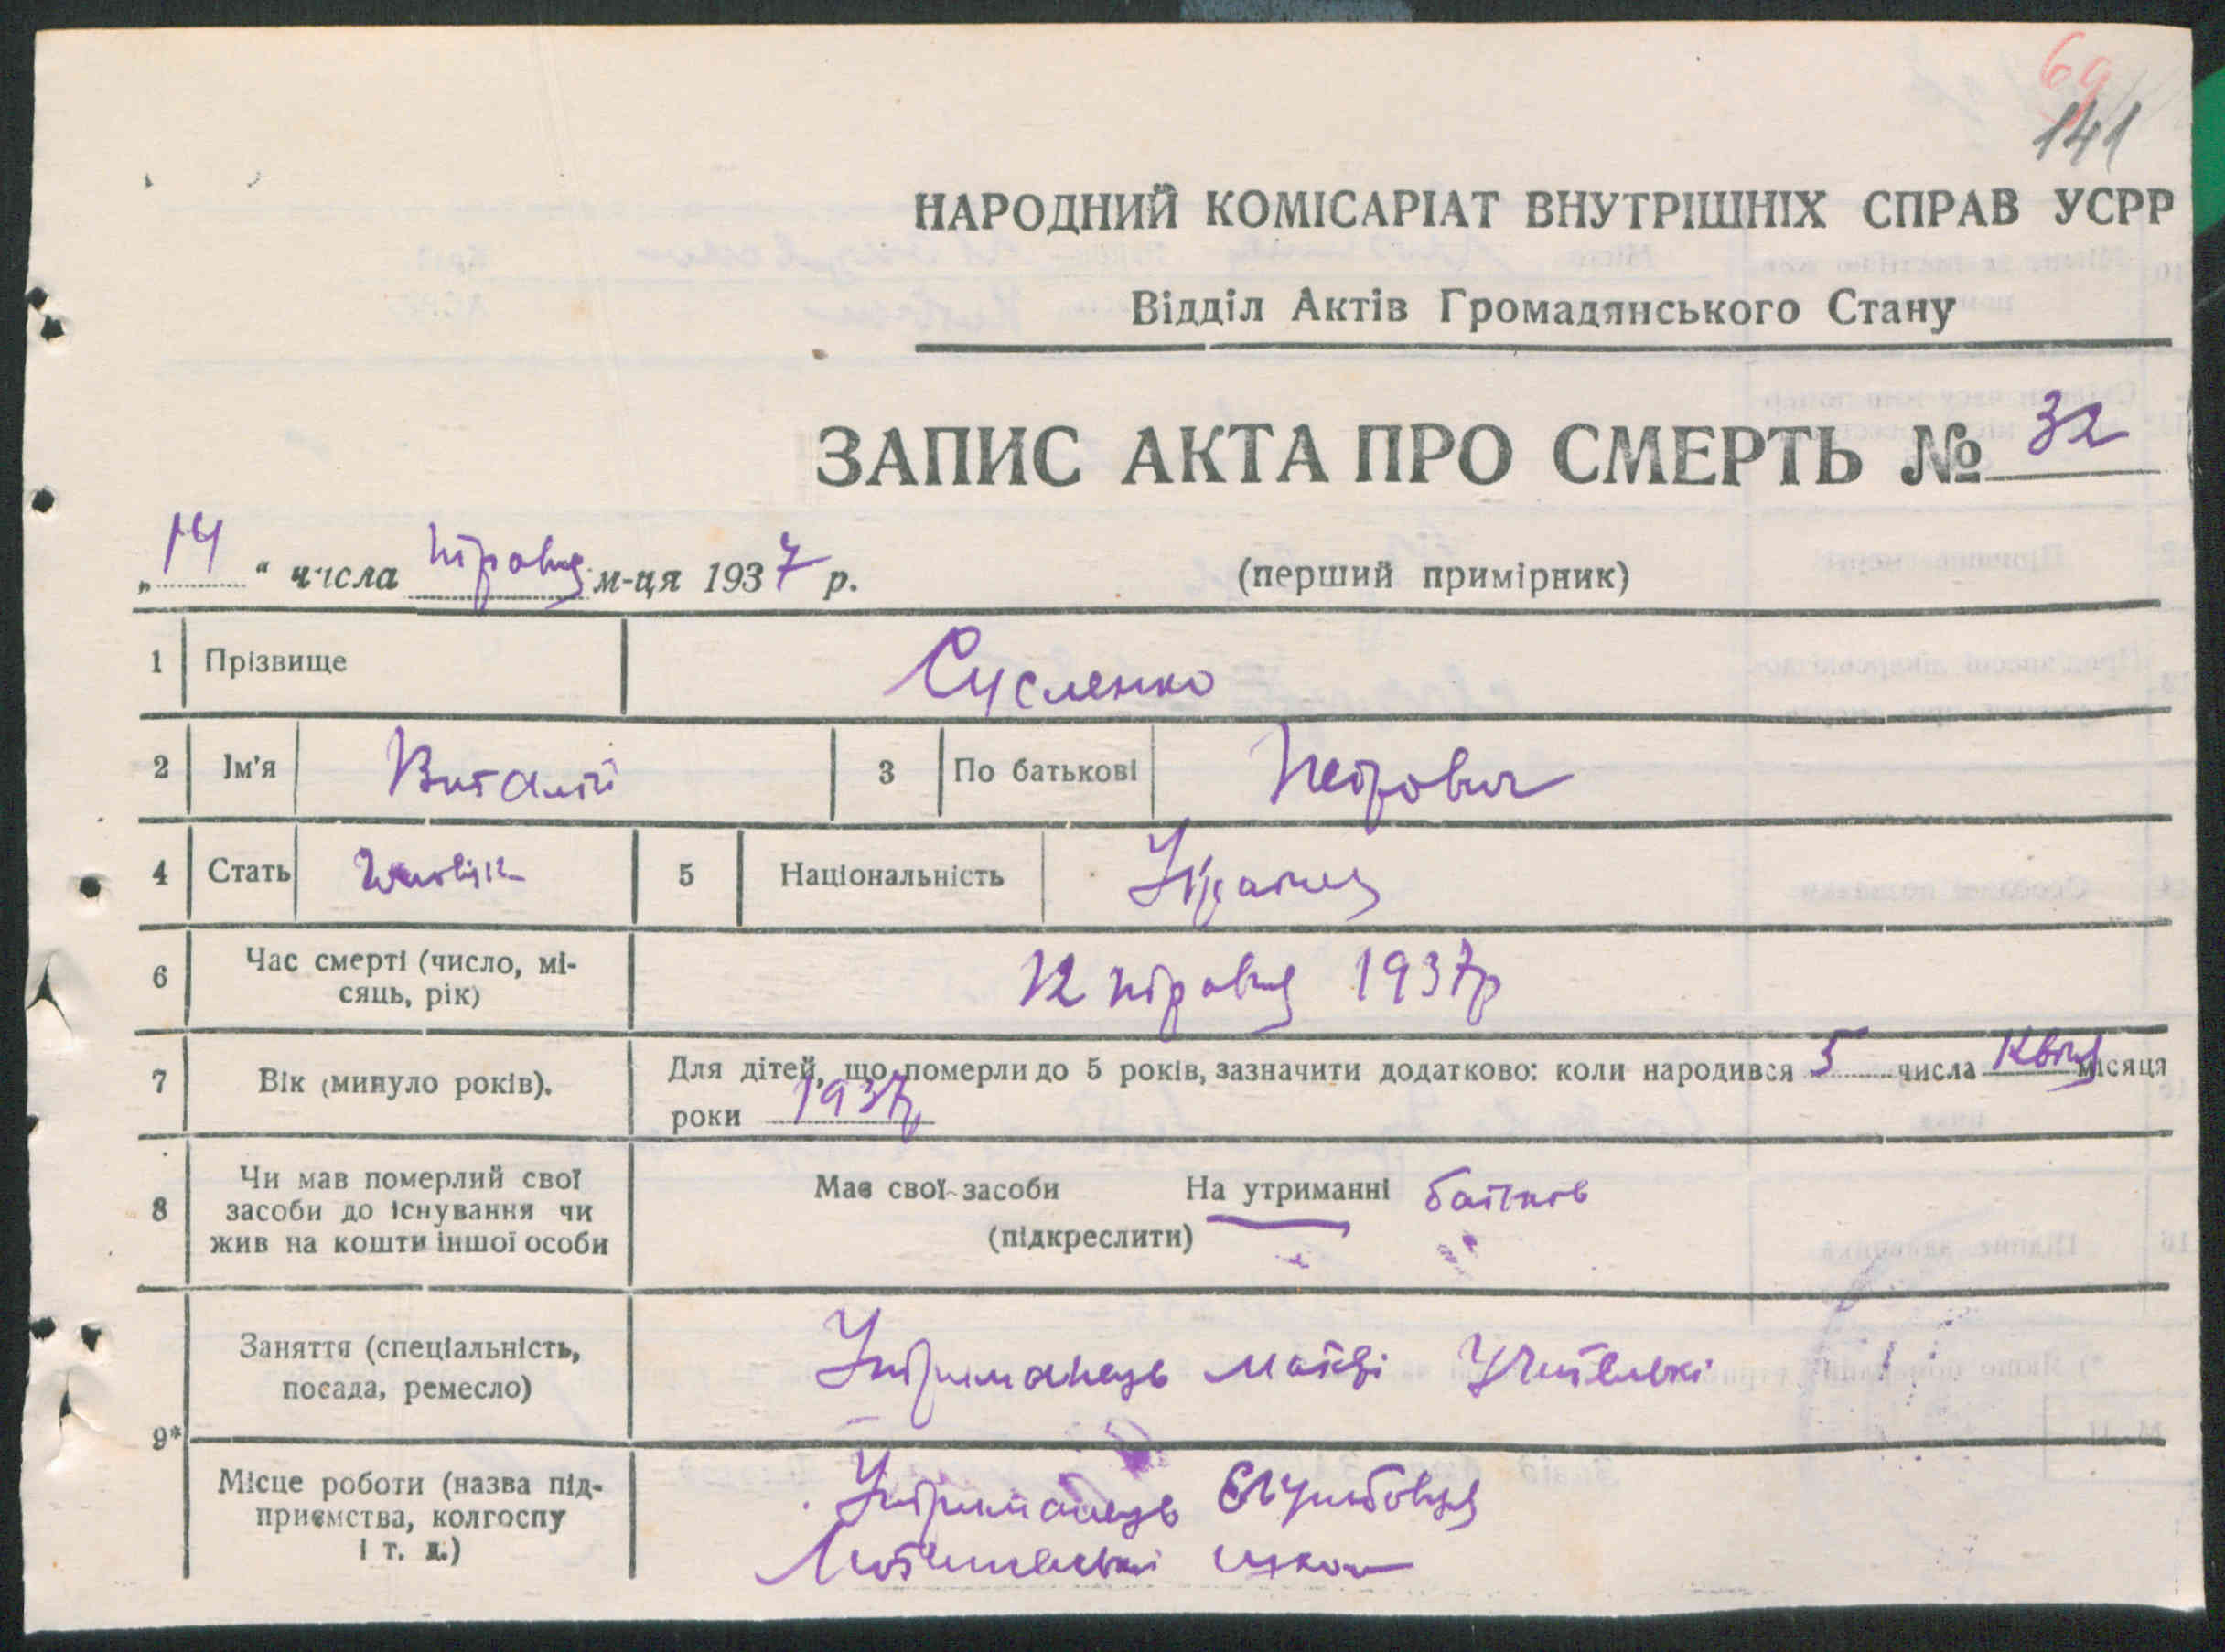 69
141
НАРОДНИЙ КОМІСАРІАТ ВНУТРІШНІХ СПРАВ УСРР
Відділ Актів Громадянського Стану
ЗАПИС АКТА ПРО СМЕРТЬ № 32
„14“ числа травня м-ця 1937 р.
(перший примірник)
1 Прізвище Сусленко
2 Ім'я Виталій 3 По батькові Петрович
4 Стать 5 Національність
6 Час смерті (число, мі-
сяць, рік)
12 травня 1937р
7 Вік (минуло років). Для дітей, що померли до 5 років, зазначити додатково: коли народився 5 числа місяця
роки 1937р
8 Чи мав померлий свої
засоби до існування чи
жив на кошти іншої особи
Має свої засоби На утриманні батьків
(підкреслити)
Заняття (спеціальність,
посада, ремесло)
Утриманець матері Учительки
9*
Місце роботи (назва під-
приємства, колгоспу
і т. д.)
Утриманець